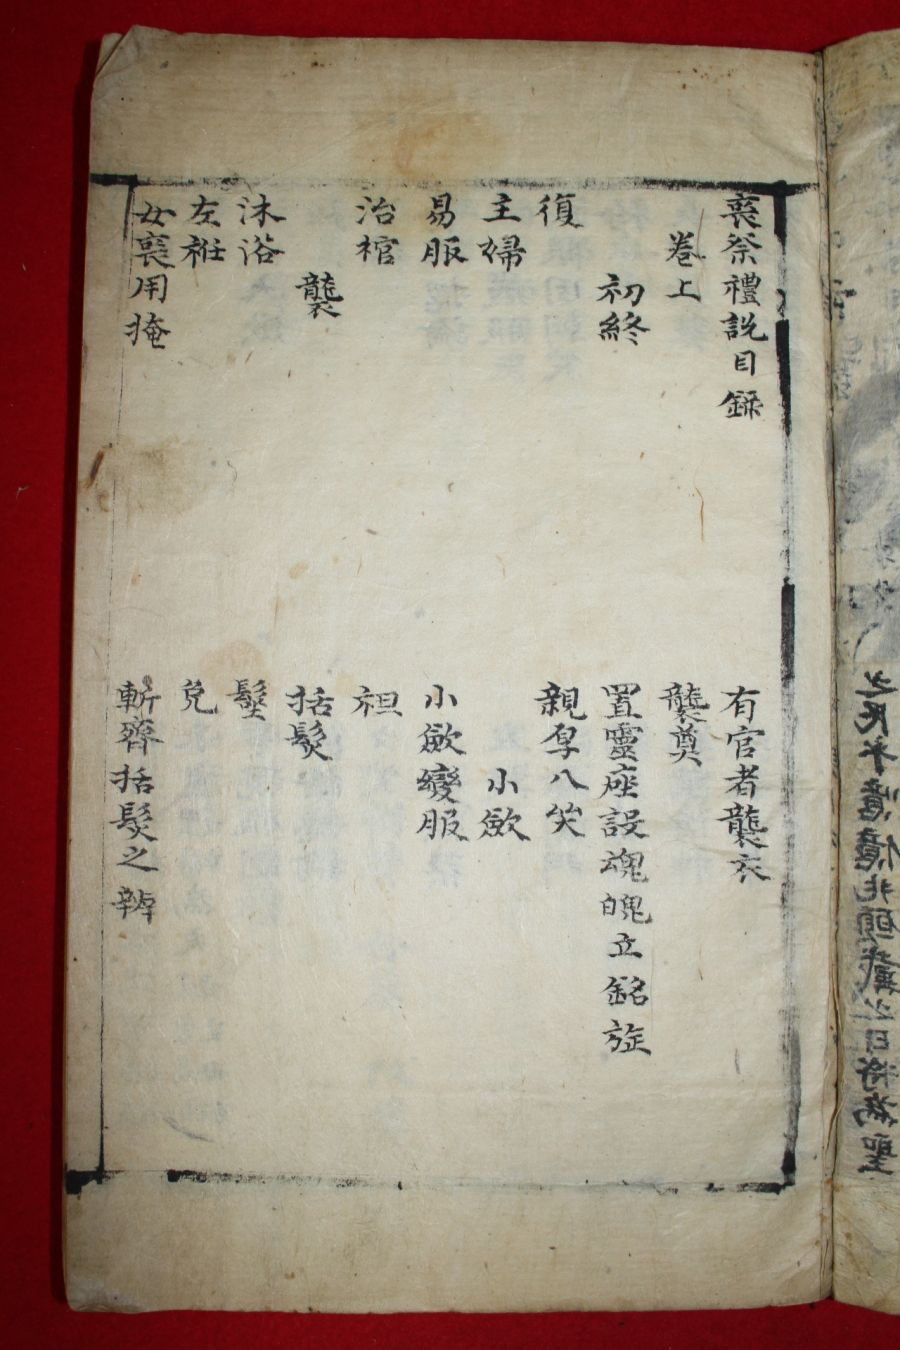 喪祭禮說目録
卷上
初終
復
主婦
易服
治棺
襲
沐浴
左袵
女喪用掩
有官者襲衣
襲奠
置靈座設魂魄立銘旌
親厚入哭
小斂
小斂變服
袒
括髮
髽
免
斬齊括髮之辨